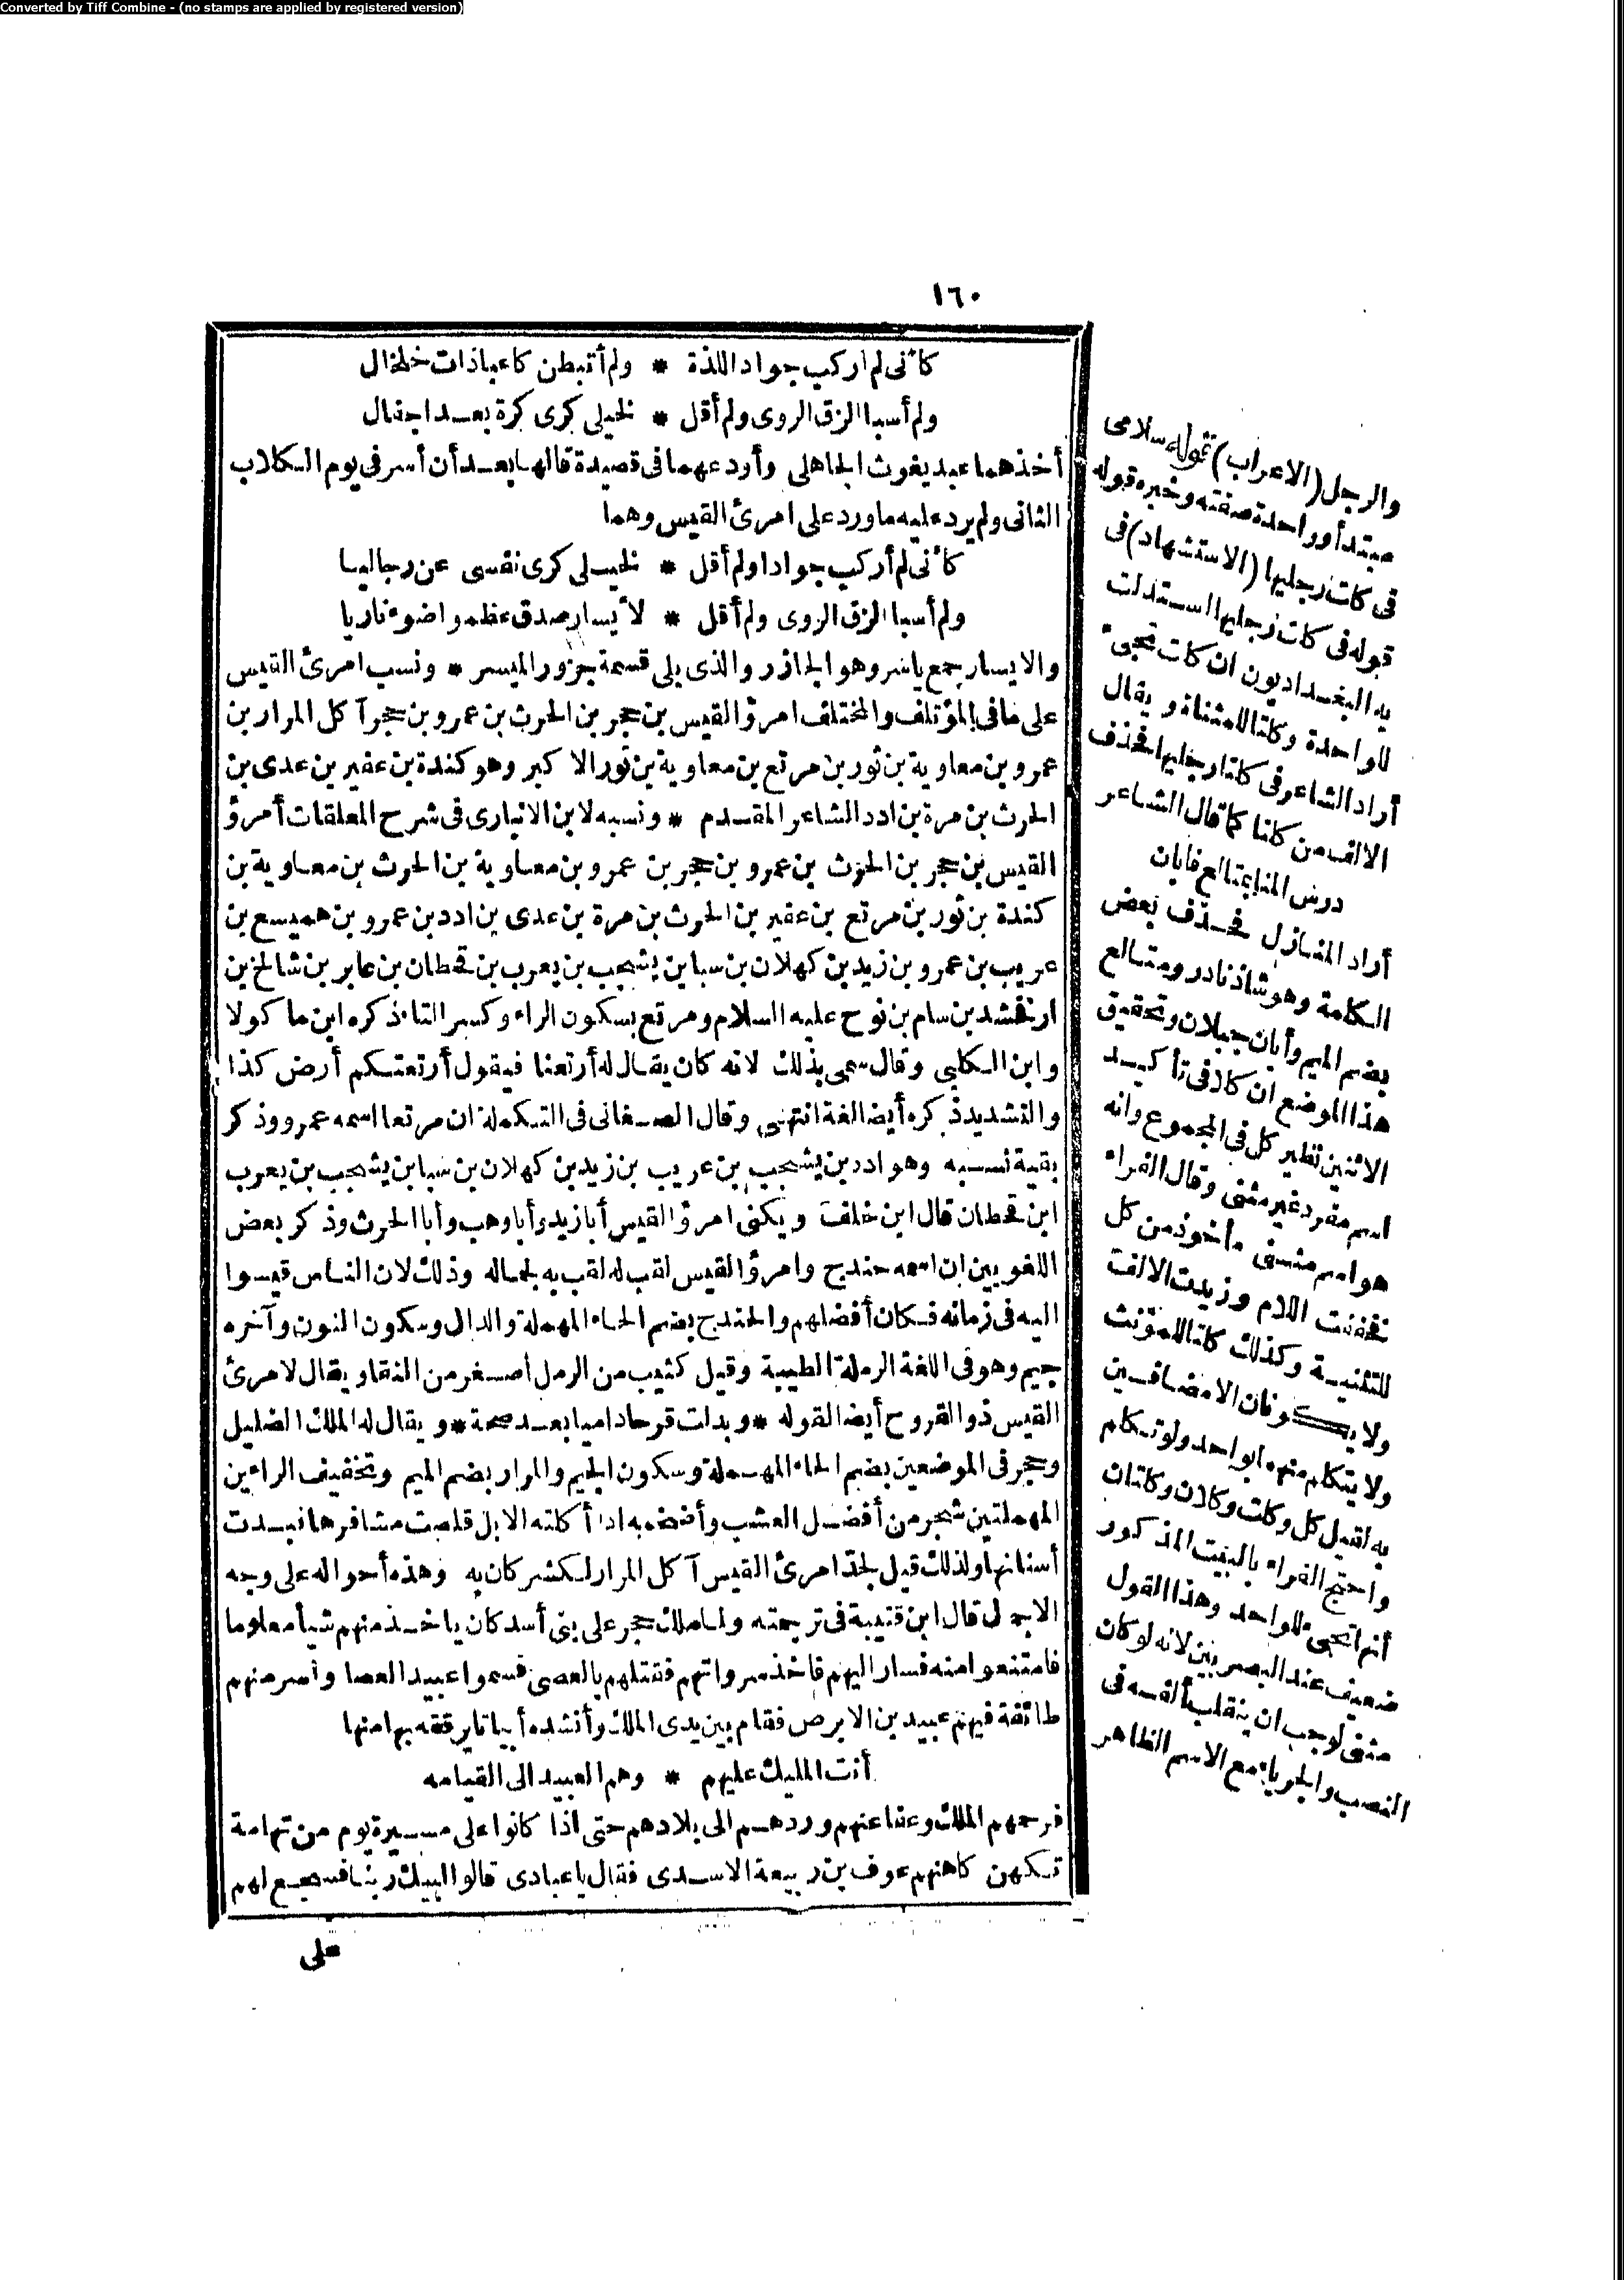 Converted by Tiff Combine - (no stamps are applied by registered version)
١٦٠
كأنى لم اركب جواد اللذة * ولم أتبطن كاعبا ذات خلخال
ولم أسبا الزق الروى ولم أقل * لخيلى كرى كرة بعد اجفال
أخذهما عبد يغوث الجاهلى وأودعهما فى قصيدة قالها بعد أن أسر فى يوم الكلاب
الثانى ولم يرد عليه ما ورد على امرئ القيس وهما
كأنى لم أركب جوادا ولم أقل * لخيلى كرى نفسى عن رجاليا
ولم أسبا الزق الروى ولم أقل * لأيسار صدق عظموا ضوء ناريا
والايسار جمع ياسر وهو الجازر والذى يلى قسمة جزور الميسر * ونسب امرئ القيس
على ما فى المؤتلف والمختلف امرؤ القيس بن حجر بن الحرث بن عمرو بن حجر آكل المرار بن
عمرو بن معاوية بن ثور بن مرتع بن معاوية بن ثور الاكبر وهو كندة بن عفير بن عدى بن
الحرث بن مرة بن ادد الشاعر المقدم * ونسبه لابن الانبارى فى شرح المعلقات أمرؤ
القيس بن حجر بن الحرث بن عمرو بن حجر بن عمرو بن معاوية بن الحرث بن معاوية بن
كندة بن ثور بن مرتع بن عفير بن الحرث بن مرة بن عدى بن ادد بن عمرو بن هميسع بن
عريب بن عمرو بن زيد بن كهلان بن سبا بن يشجب بن يعرب بن قحطان بن عابر بن شالخ بن
ارفخشد بن سام بن نوح عليه السلام ومرتع بسكون الراء وكسر التاء ذكره ابن ماكولا
وابن الكلبى وقال سمى بذلك لانه كان يقال له أرتعنا فيقول أرتعتكم أرض كذا
والتشديد ذكره أيضا لغة انتهى وقال الصغانى فى التكملة ان مرتعا اسمه عمرو وذكر
بقية نسبه وهو ادد بن يشجب بن عريب بن زيد بن كهلان بن سبا بن يشجب بن يعرب
ابن قحطان قال ابن خلف ويكنى امرؤ القيس أبا زيد وأبا وهب وأبا الحرث وذكر بعض
اللغويين ان اسمه حندج وامرؤ القيس لقب له لقب به لجماله وذلك لان الناس قيسوا
اليه فى زمانه فكان أفضلهم والحندج بضم الحاء المهملة والدال وسكون النون وآخره
جيم وهو فى اللغة الرملة الطيبة وقيل كثيب من الرمل أصغر من النقا ويقال لامرئ
القيس ذو القروح أيضا لقوله * وبدلت قرحا داميا بعد صحة * ويقال له الملك الضليل
وحجر فى الموضعين بضم الحاء المهملة وسكون الجيم والمرار بضم الميم وتخفيف الراءين
المهملتين شجر من أفضل العشب وأضخمه اذا أكلته الابل قلصت مشافرها فبدت
أسنانها ولذلك قيل لجد امرئ القيس آكل المرار لكشر كان به وهذه أحواله على وجه
الاجمال قال ابن قتيبة فى ترجمته ولما ملك حجر على بنى أسد كان ياخذ منهم شيأ معلوما
فامتنعوا منه فسار اليهم فاخذ سرواتهم فقتلهم بالعصى فسموا عبيد العصا وأسر منهم
طائفة فيهم عبيد بن الابرص فقام بين يدى الملك وأنشده أبياتا يرققه بها منها
أنت المليك عليهم * وهم العبيد الى القيامه
فرحمهم الملك وعفا عنهم وردهم الى بلادهم حتى اذا كانوا على مسيرة يوم من تهامة
تكهن كاهنهم عوف بن ربيعة الاسدى فقال يا عبادى قالوا لبيك ربنا فسجع لهم
على
والرجل (الاعراب) قوله سلامى
مبتدأ وواحدة صفته وخبره قوله
فى كلت رجليها (الاستشهاد) فى
قوله فى كلت رجليها استدلت
به البغداديون ان كلت تجىء
للواحدة وكلتا للمثناة ويقال
أراد الشاعر فى كلتا رجليها فحذف
الالف من كلتا كما قال الشاعر
درس المنا بمتالع فابان
أراد المنازل فحذف بعض
الكلمة وهو شاذ نادر ومتالع
بضم الميم وأبان جبلان وتحقيق
هذا الموضع ان كلا فى تأكيد
الاثنين نظير كل فى المجموع وانه
اسم مفرد غير مثنى وقال الفراء
هو اسم مثنى مأخوذ من كل
تخففت اللام وزيدت الالف
للتثنية وكذلك كلتا للمؤنث
ولا يكونان الا مضافين
ولا يتكلم منهما بواحد ولو تكلم
به لقيل كل وكلت وكلان وكلتان
واحتج الفراء بالبيت المذكور
أنها تجىء للواحد وهذا القول
ضعيف عند البصريين لانه لو كان
مثنى لوجب ان ينقلب ألفه فى
النصب والجر ياء مع الاسم الظاهر